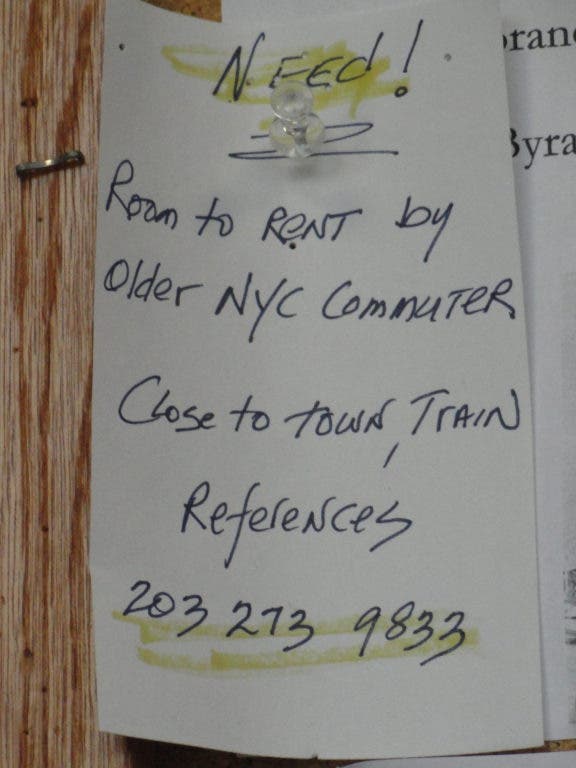 NEEd!
Room to RENT by
Older NYC Commuter
Close to town, Train
References
203 273 9833